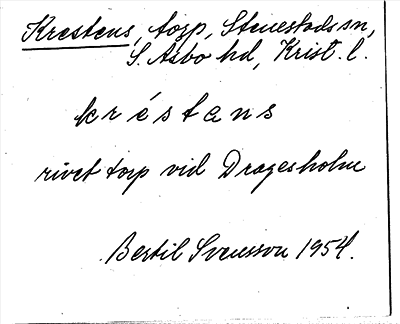 Krestens, torp, Stenestads sn,
S. Åsbo hd, Krist. l.
kréstans
rivet torp vid Dragesholm
Bertil Svensson 1954.